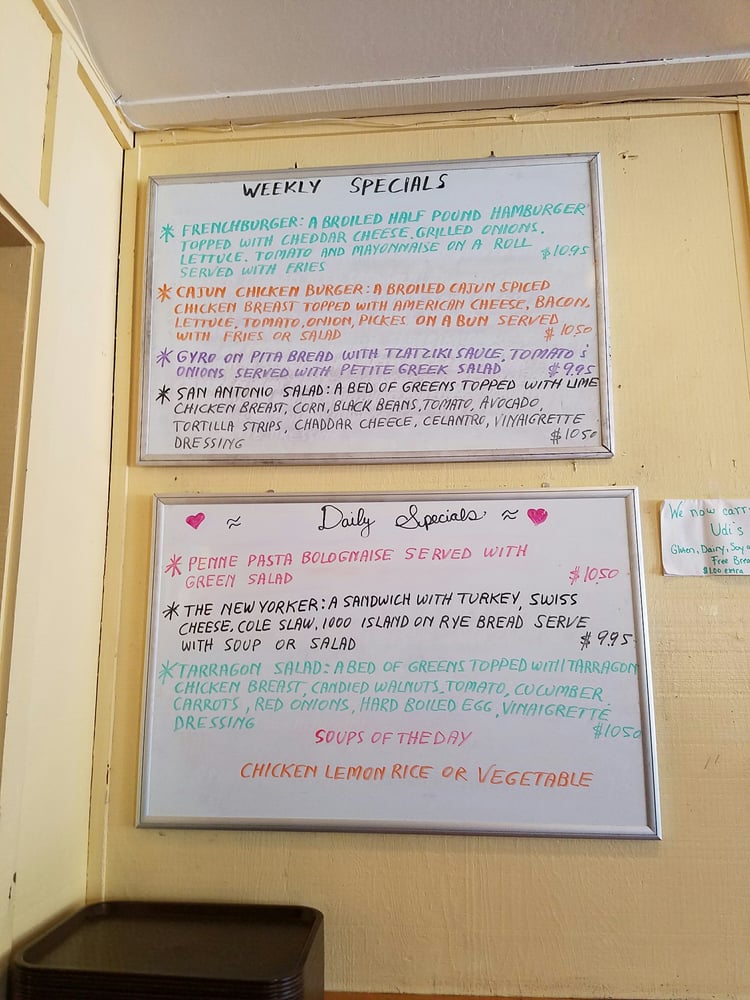 WEEKLY SPECIALS
* FRENCHBURGER: A BROILED HALF POUND HAMBURGER
TOPPED WITH CHEDDAR CHEESE, GRILLED ONIONS,
LETTUCE, TOMATO AND MAYONNAISE ON A ROLL
SERVED WITH FRIES $10.95
* CAJUN CHICKEN BURGER: A BROILED CAJUN SPICED
CHICKEN BREAST TOPPED WITH AMERICAN CHEESE, BACON,
LETTULE, TOMATO, ONION, PICKES ON A BUN SERVED
WITH FRIES OR SALAD $10.50
* GYRO ON PITA BREAD WITH TZATZIKI SAUCE, TOMATO &
ONIONS SERVED WITH PETITE GREEK SALAD $9.95
* SAN ANTONIO SALAD: A BED OF GREENS TOPPED WITH LIME
CHICKEN BREAST, CORN, BLACK BEANS, TOMATO, AVOCADO,
TORTILLA STRIPS, CHADDAR CHEECE, CELANTRO, VINAIGRETTE
DRESSING $10.50
Daily Specials
* PENNE PASTA BOLOGNAISE SERVED WITH
GREEN SALAD $10.50
* THE NEW YORKER: A SANDWICH WITH TURKEY, SWISS
CHEESE, COLE SLAW, 1000 ISLAND ON RYE BREAD SERVE
WITH SOUP OR SALAD $9.95
* TARRAGON SALAD: A BED OF GREENS TOPPED WITH TARRAGON
CHICKEN BREAST, CANDIED WALNUTS, TOMATO, CUCUMBER,
CARROTS, RED ONIONS, HARD BOILED EGG, VINAIGRETTE
DRESSING $10.50
SOUPS OF THE DAY
CHICKEN LEMON RICE OR VEGETABLE
We now carr
Udi's
Gluten, Dairy, Soy
Free Brea
$1.00 extra